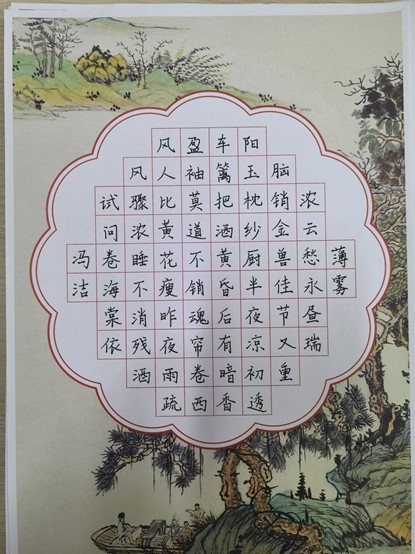 薄雾
浓云愁永昼瑞
脑销金兽佳节又重
阳玉枕纱厨半夜凉初透
东篱把酒黄昏后有暗香
盈袖莫道不销魂帘卷西
风人比黄花瘦昨夜雨疏
风骤浓睡不消残酒
试问卷海棠依
冯洁